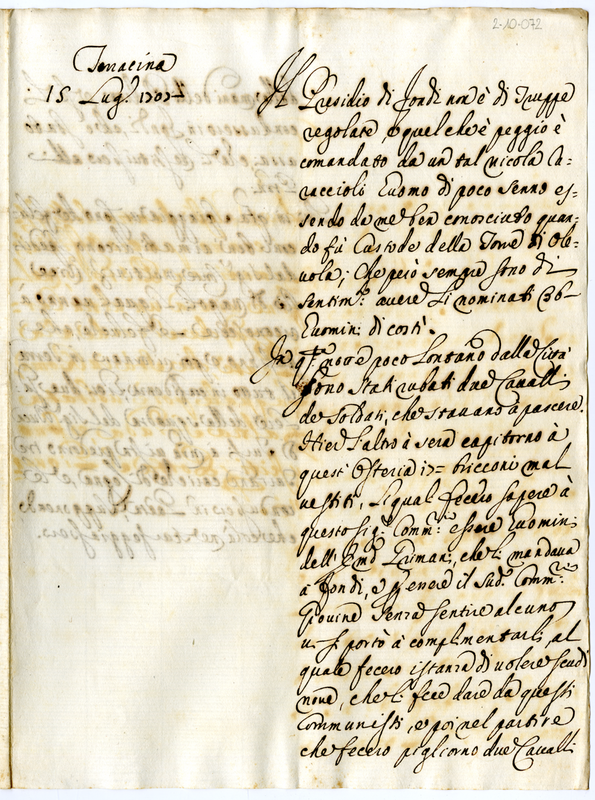 2-10-072
Terracina
15 Lug.º 1707
Il Presidio di Fondi non è di Truppe
regolate, e quel che è peggio è
comandato da un tal Nicola Ca-
raccioli Vuomo di poco senno es-
sendo da me ben conosciuto quan-
do fù Custode della Torre di Ole-
vola; che però sempre sono di
sentim.º avere li nominati 36
Vuomini di costì.
In q.ta notte poco lontano dalla Città
sono stati rubati due Cavalli
de Soldati, che stavano à pascere.
Hier l'altro à sera capitorno à
quest'Osteria 17 bricconi mal
vestiti, li quali fecero sapere à
questo sig.r Comm.rio essere Vuomini
dell' Em.o Grimani, che li mandava
à Fondi, e per essere il sud.º Comm.rio
Giovine senza sentire alcuno
si portò à complimentarli, al
quale fecero istanza di volere scudi
nove, che li fece dare da questi
Communisti, e poi nel partire
che fecero pigliorno due Cavalli